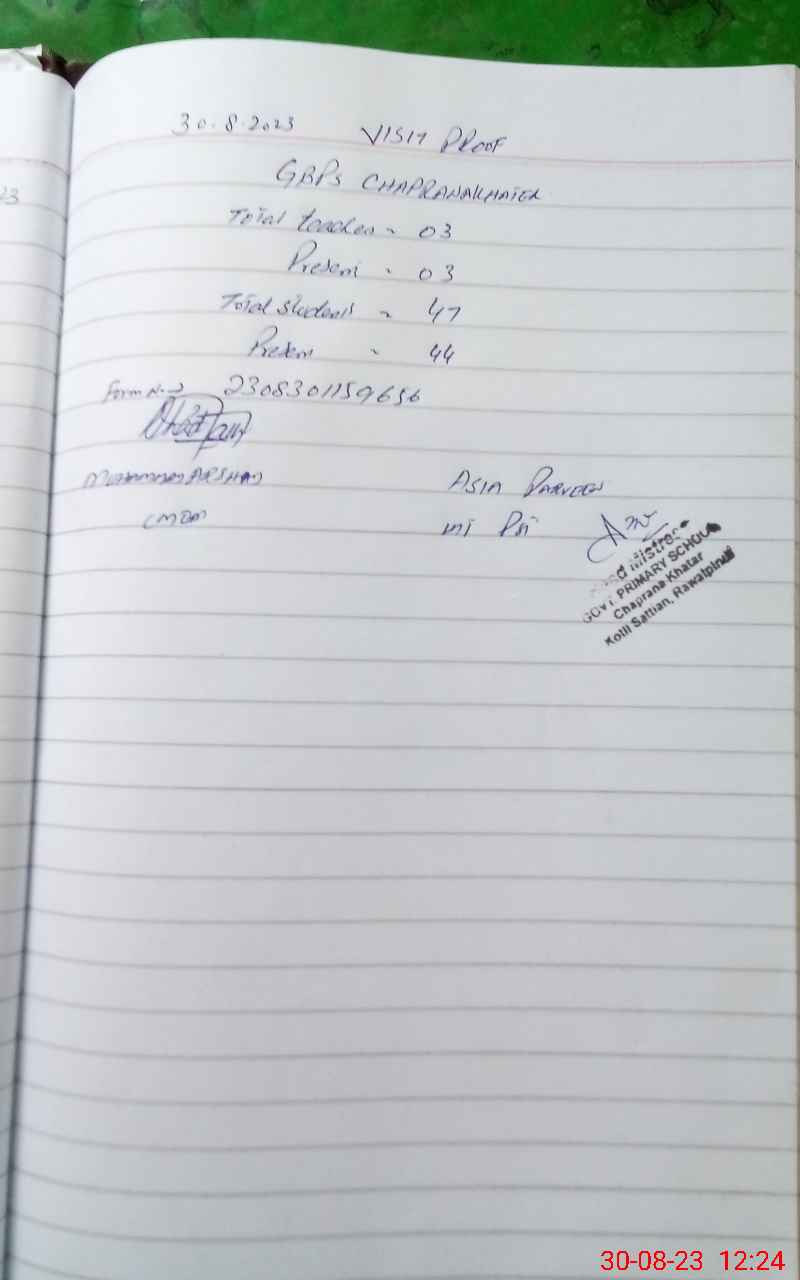 30.8.2023 VISIT PROOF
GBPS CHAPRANAKHATER
Total teacher = 03
Present = 03
Total students = 47
Present = 44
Form No. 2308301159656
MUHAMMAD ARSHAD
ASIA PARVEEN
Head Mistress
GOVT PRIMARY SCHOOL
Chaprana Khatar
Kotli Sattian, Rawalpindi
23
30-08-23 12:24